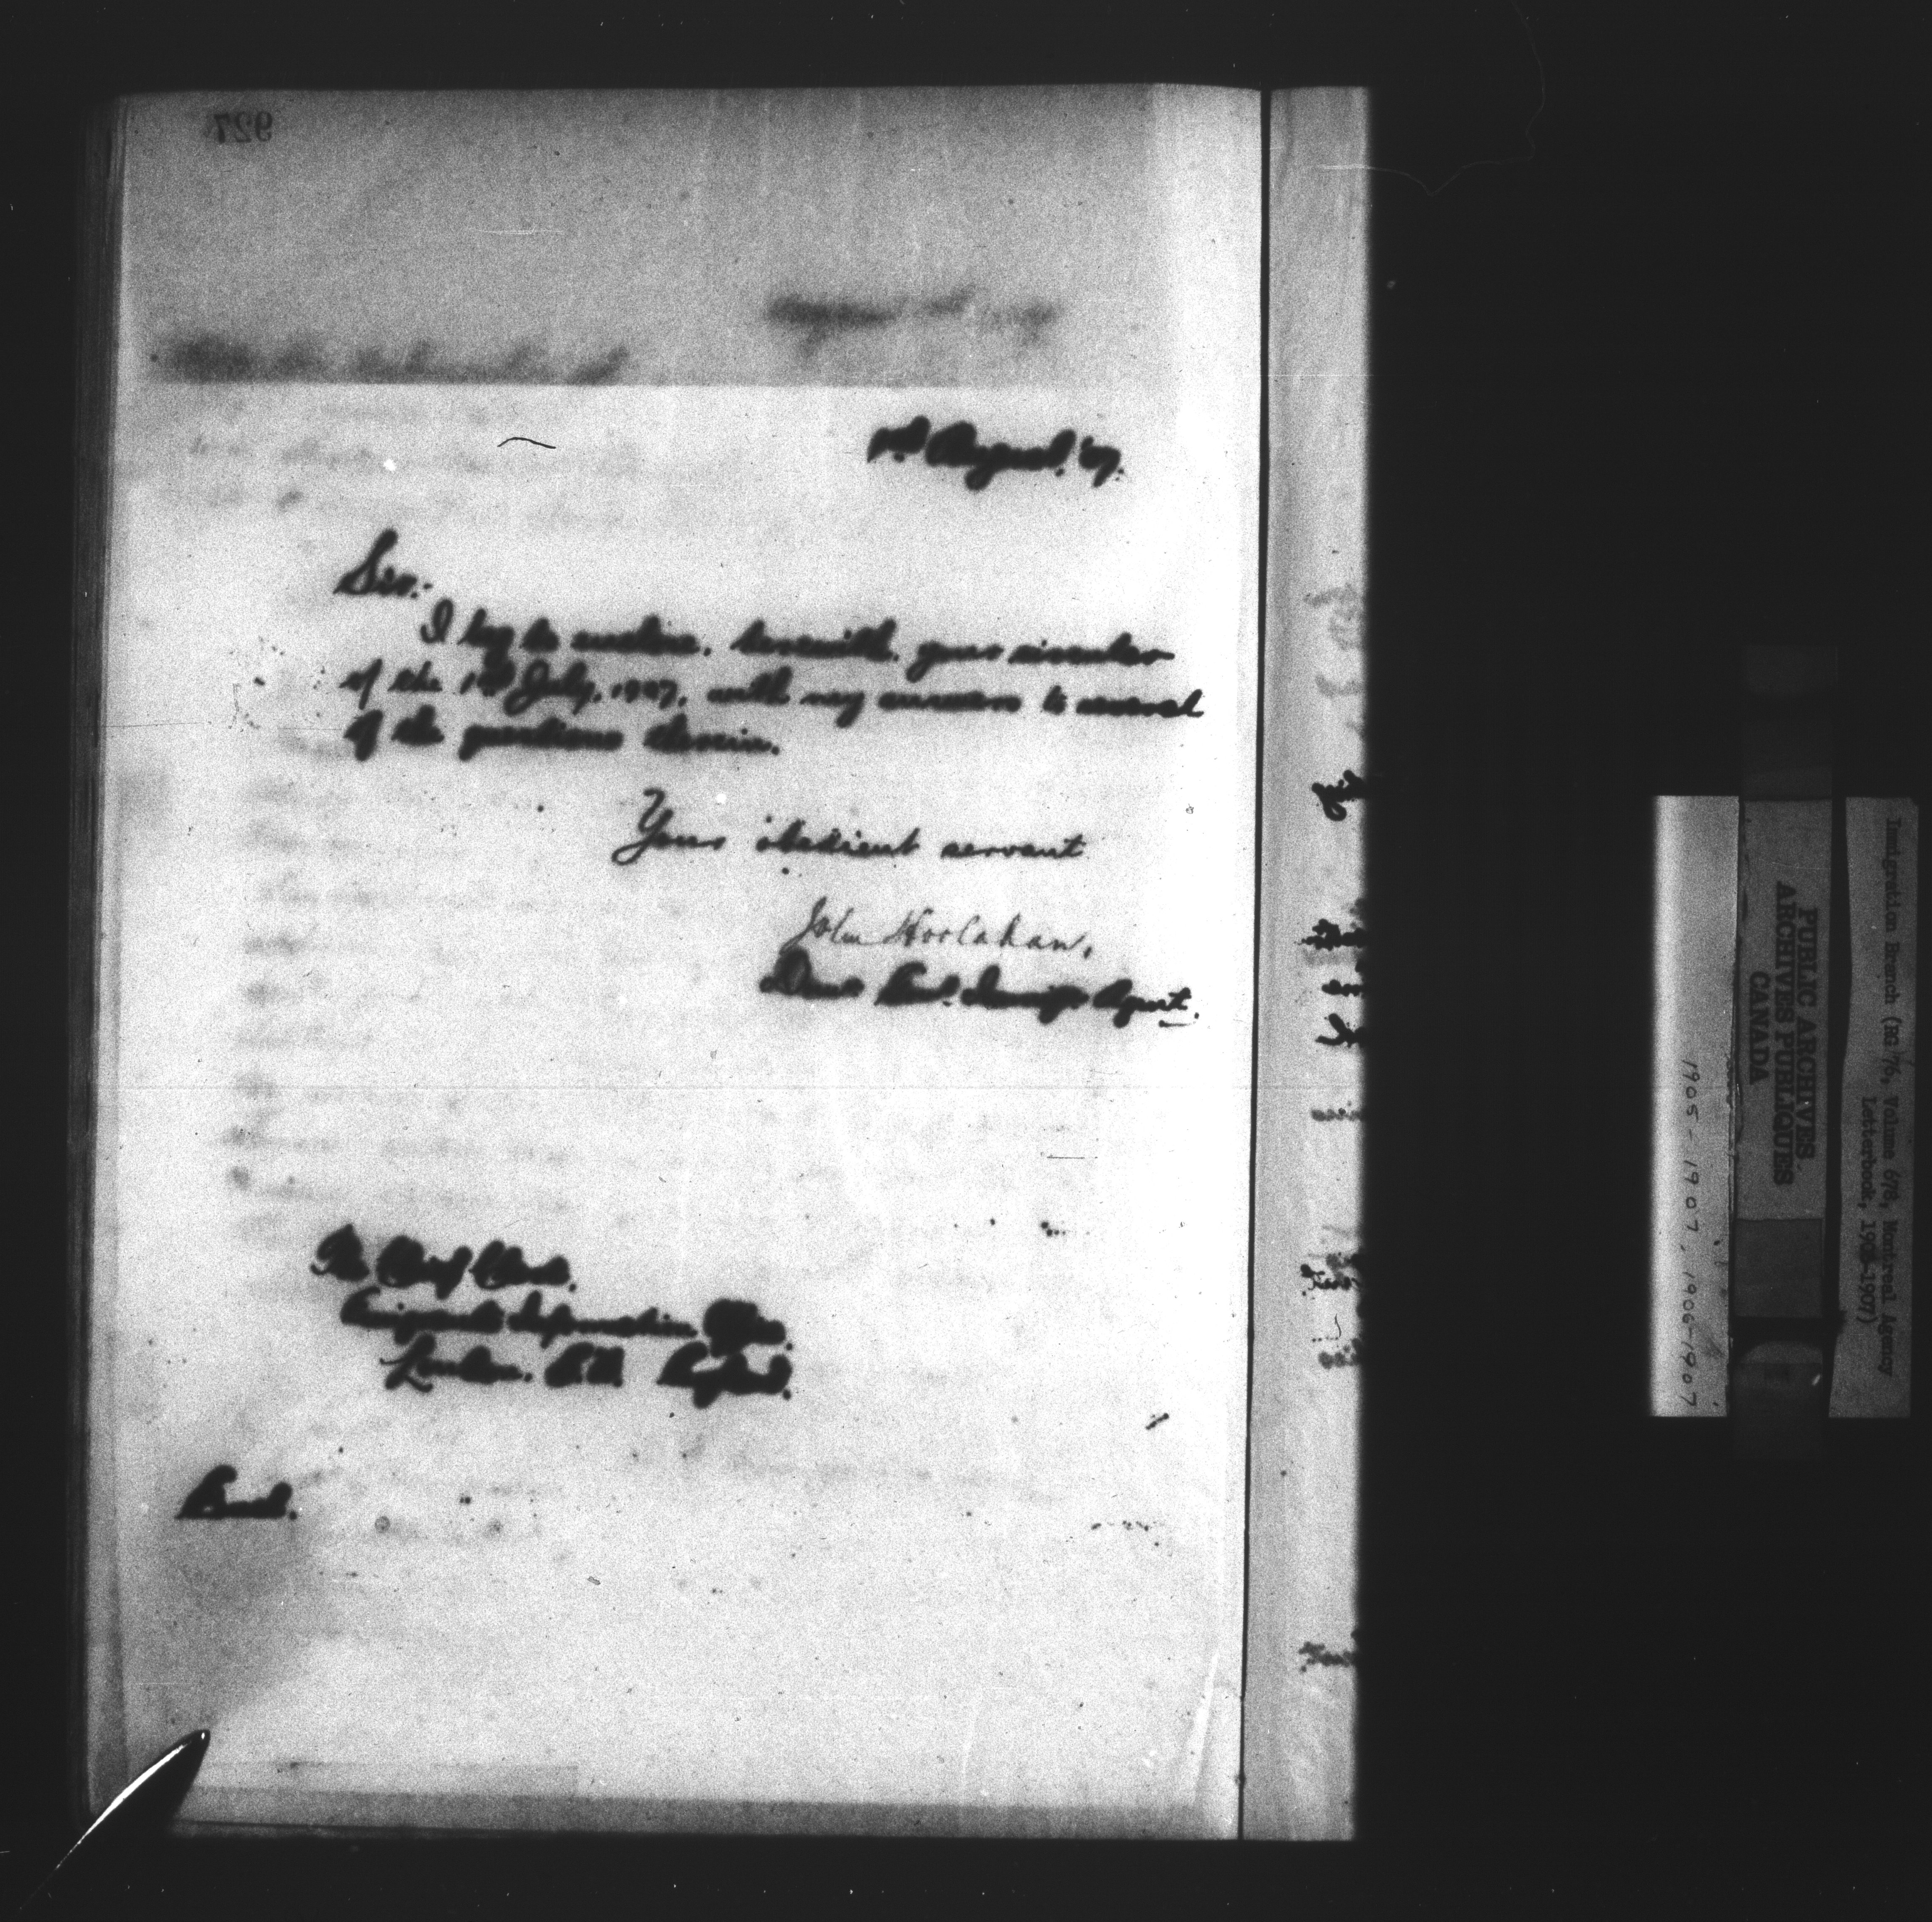 927
1st August. '07.
Sir:-
I beg to enclose, herewith, your circular
of the 1st July, 1907, with my answers to several
of the questions therein.
Your obedient servant
John Hoolahan,
Domn Govt. Immign Agent.
The Chief Clerk.
Emigrants Information Office.
London. S.W. England.
Encl.
PUBLIC ARCHIVES
ARCHIVES PUBLIQUES
CANADA
Immigration Branch (RG 76, Volume 678, Montreal Agency
Letterbook, 1905-1907)
1905-1907, 1906-1907